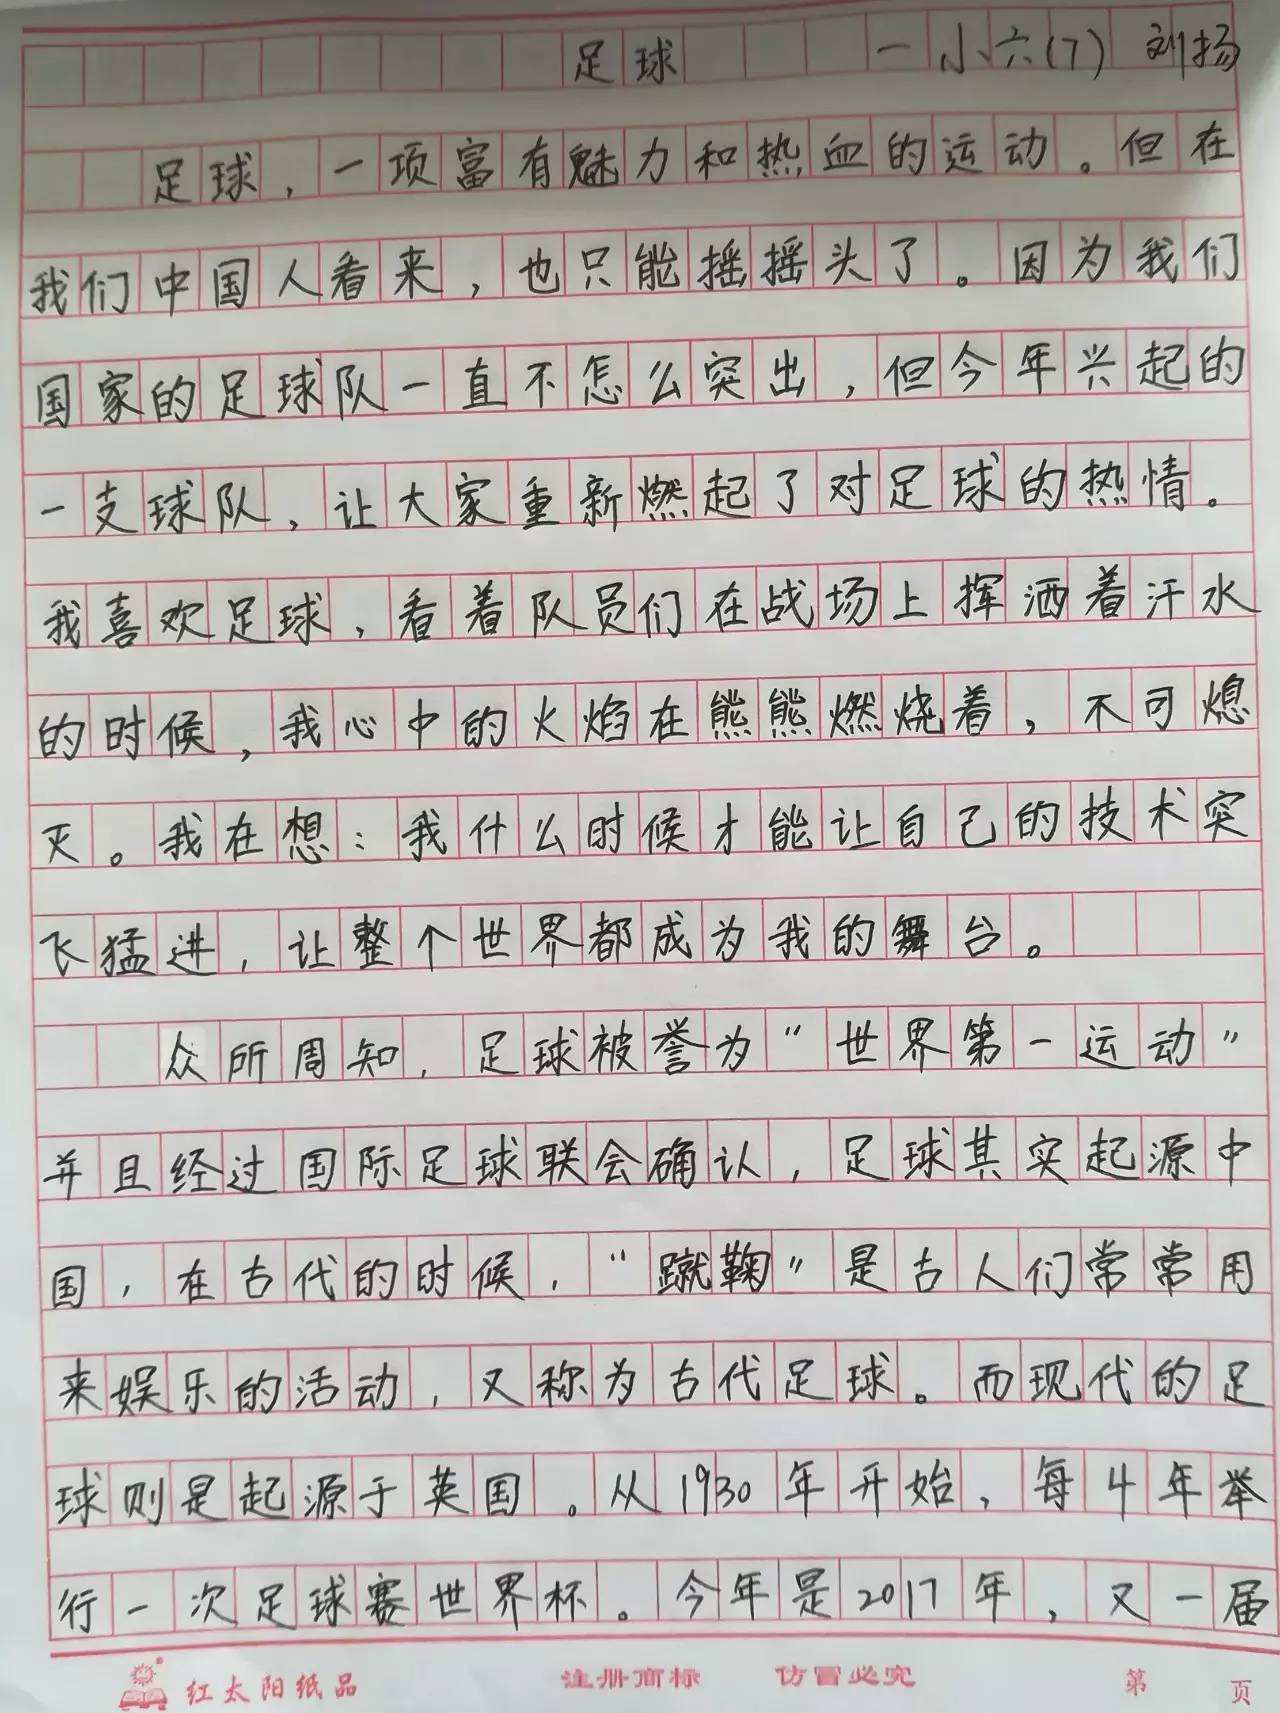 足球 一小六(7) 刘扬
足球，一项富有魅力和热血的运动。但在
我们中国人看来，也只能摇摇头了。因为我们
国家的足球队一直不怎么突出，但今年兴起的
一支球队，让大家重新燃起了对足球的热情。
我喜欢足球，看着队员们在战场上挥洒着汗水
的时候，我心中的火焰在熊熊燃烧着，不可熄
灭。我在想：我什么时候才能让自己的技术突
飞猛进，让整个世界都成为我的舞台。
众所周知，足球被誉为“世界第一运动”
并且经过国际足球联会确认，足球其实起源中
国，在古代的时候，“蹴鞠”是古人们常常用
来娱乐的活动，又称为古代足球。而现代的足
球则是起源于英国。从1930年开始，每4年举
行一次足球赛世界杯。今年是2017年，又一届
红太阳纸品 注册商标 仿冒必究 第 页